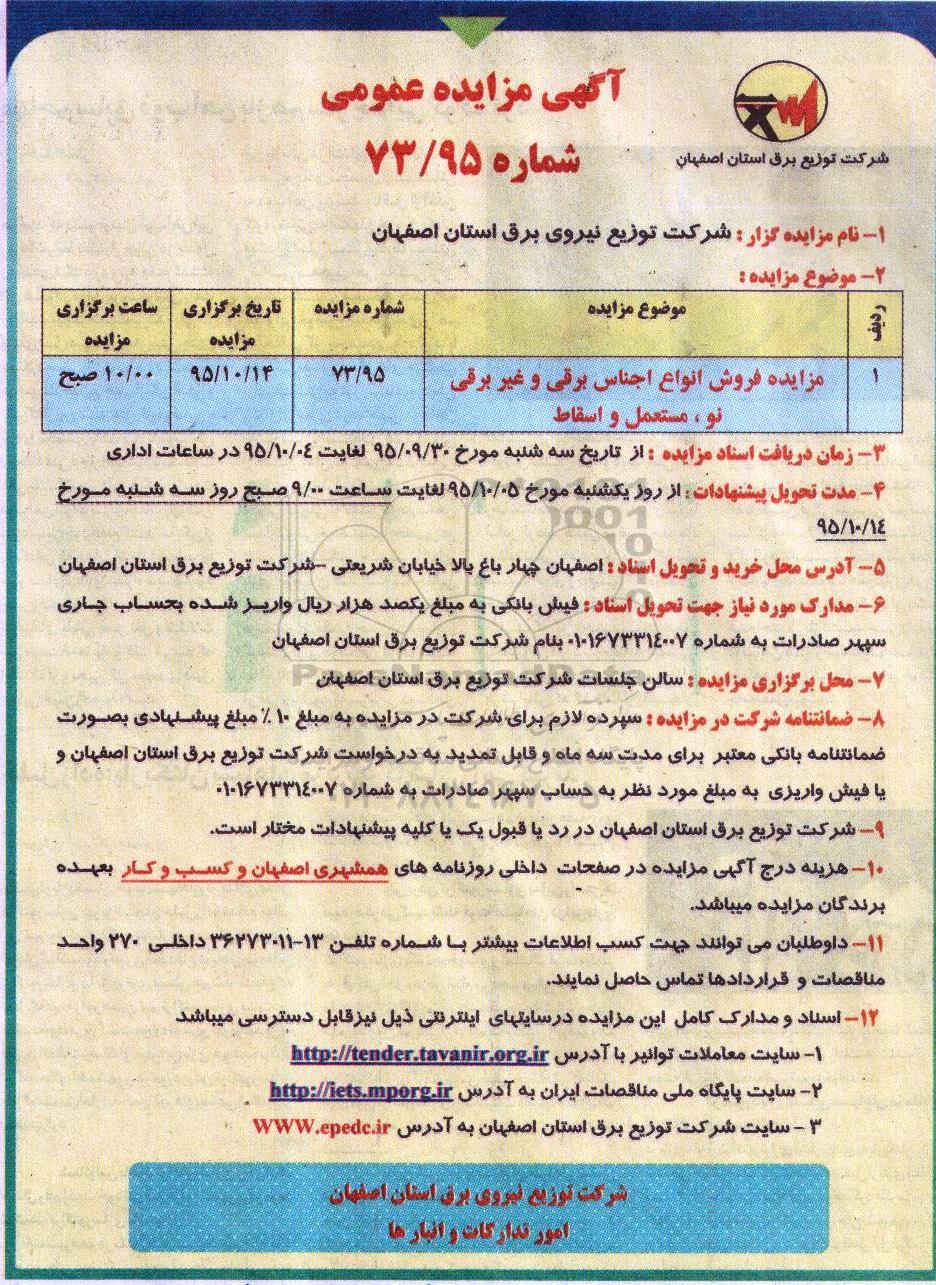 آگهی مزایده عمومی
شماره ۷۳/۹۵
شرکت توزیع برق استان اصفهان
۱- نام مزایده گزار : شرکت توزیع نیروی برق استان اصفهان
۲- موضوع مزایده :
ردیف موضوع مزایده شماره مزایده تاریخ برگزاری مزایده ساعت برگزاری مزایده
۱ مزایده فروش انواع اجناس برقی و غیر برقی ۷۳/۹۵ ۹۵/۱۰/۱۴ ۱۰/۰۰ صبح
نو ، مستعمل و اسقاط
۳- زمان دریافت اسناد مزایده : از تاریخ سه شنبه مورخ ۹۵/۰۹/۳۰ لغایت ۹۵/۱۰/۰۴ در ساعات اداری
۴- مدت تحویل پیشنهادات : از روز یکشنبه مورخ ۹۵/۱۰/۰۵ لغایت ساعت ۹/۰۰ صبح روز سه شنبه مورخ
۹۵/۱۰/۱۴
۵- آدرس محل خرید و تحویل اسناد : اصفهان چهار باغ بالا خیابان شریعتی -شرکت توزیع برق استان اصفهان
۶- مدارک مورد نیاز جهت تحویل اسناد : فیش بانکی به مبلغ یکصد هزار ریال واریز شده بحساب جاری
سپهر صادرات به شماره ۰۱۰۱۶۷۳۳۱۴۰۰۷ بنام شرکت توزیع برق استان اصفهان
۷- محل برگزاری مزایده : سالن جلسات شرکت توزیع برق استان اصفهان
۸- ضمانتنامه شرکت در مزایده : سپرده لازم برای شرکت در مزایده به مبلغ ۱۰ ٪ مبلغ پیشنهادی بصورت
ضمانتنامه بانکی معتبر برای مدت سه ماه و قابل تمدید به درخواست شرکت توزیع برق استان اصفهان و
یا فیش واریزی به مبلغ مورد نظر به حساب سپهر صادرات به شماره ۰۱۰۱۶۷۳۳۱۴۰۰۷
۹- شرکت توزیع برق استان اصفهان در رد یا قبول یک یا کلیه پیشنهادات مختار است.
۱۰- هزینه درج آگهی مزایده در صفحات داخلی روزنامه های همشهری اصفهان و کسب و کار بعهده
برندگان مزایده میباشد.
۱۱- داوطلبان می توانند جهت کسب اطلاعات بیشتر با شماره تلفن ۱۳-۳۶۲۷۳۰۱۱ داخلی ۲۷۰ واحد
مناقصات و قراردادها تماس حاصل نمایند.
۱۲- اسناد و مدارک کامل این مزایده درسایتهای اینترنتی ذیل نیزقابل دسترسی میباشد
۱- سایت معاملات توانیر با آدرس http://tender.tavanir.org.ir
۲- سایت پایگاه ملی مناقصات ایران به آدرس http://iets.mporg.ir
۳ - سایت شرکت توزیع برق استان اصفهان به آدرس WWW.epedc.ir
شرکت توزیع نیروی برق استان اصفهان
امور تدارکات و انبار ها